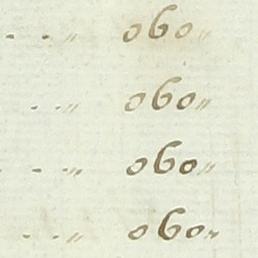 . . „ 060 „
. . „ 060 „
. . „ 060 „
. . „ 060 „